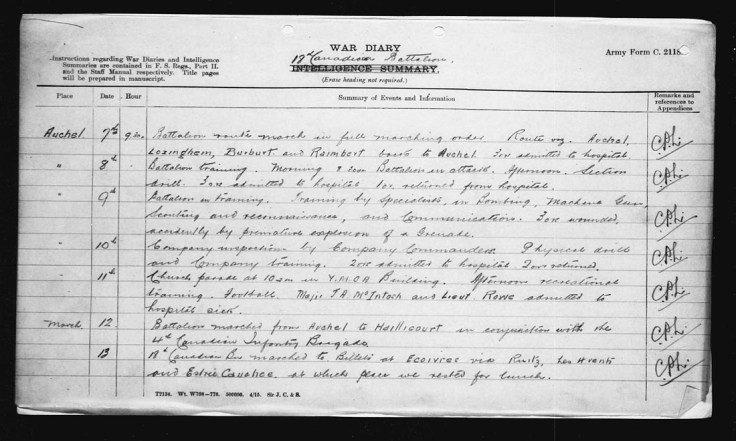 WAR DIARY
18th Canadian Battalion.
INTELLIGENCE SUMMARY.
(Erase heading not required.)
Army Form C. 2118
Instructions regarding War Diaries and Intelligence
Summaries are contained in F. S. Regs., Part II.
and the Staff Manual respectively. Title pages
will be prepared in manuscript.
Place Date Hour Summary of Events and Information Remarks and references to Appendices
Auchel 7th Battalion route march in full marching order Route viz. Auchel,
Lozinghem, Burburt and Raimbert back to Auchel. 7 or admitted to hospital.
" 8th Battalion training. Morning Battalion in attack. Afternoon. Section
drill. admitted to hospital 1 or. returned from hospital.
" 9th Battalion in training. Training by specialists, in Bombing, Machine Gun,
Scouting and reconnaisance, and Communication. wounded,
accidently by premature explosion of a Grenade.
" 10th Company inspections by Company Commanders. Physical drill
and Company training. admitted to hospital returned.
" 11th Church parade at 10 am in Y.M.C.A Building. Afternoon recreational
training. Football. Major J.A. McIntosh and Lieut. Rowe admitted to
hospital sick.
March 12. Battalion marched from Auchel to Haillicourt in conjunction with the
4th Canadian Infantry Brigade
13 18th Canadian Bn marched to Billets at ECOIVRES via
and Estrée Cauchee at which place we rested for lunch.
T2134. Wt. W708—776. 500000. 4/15. Sir J. C. & S.